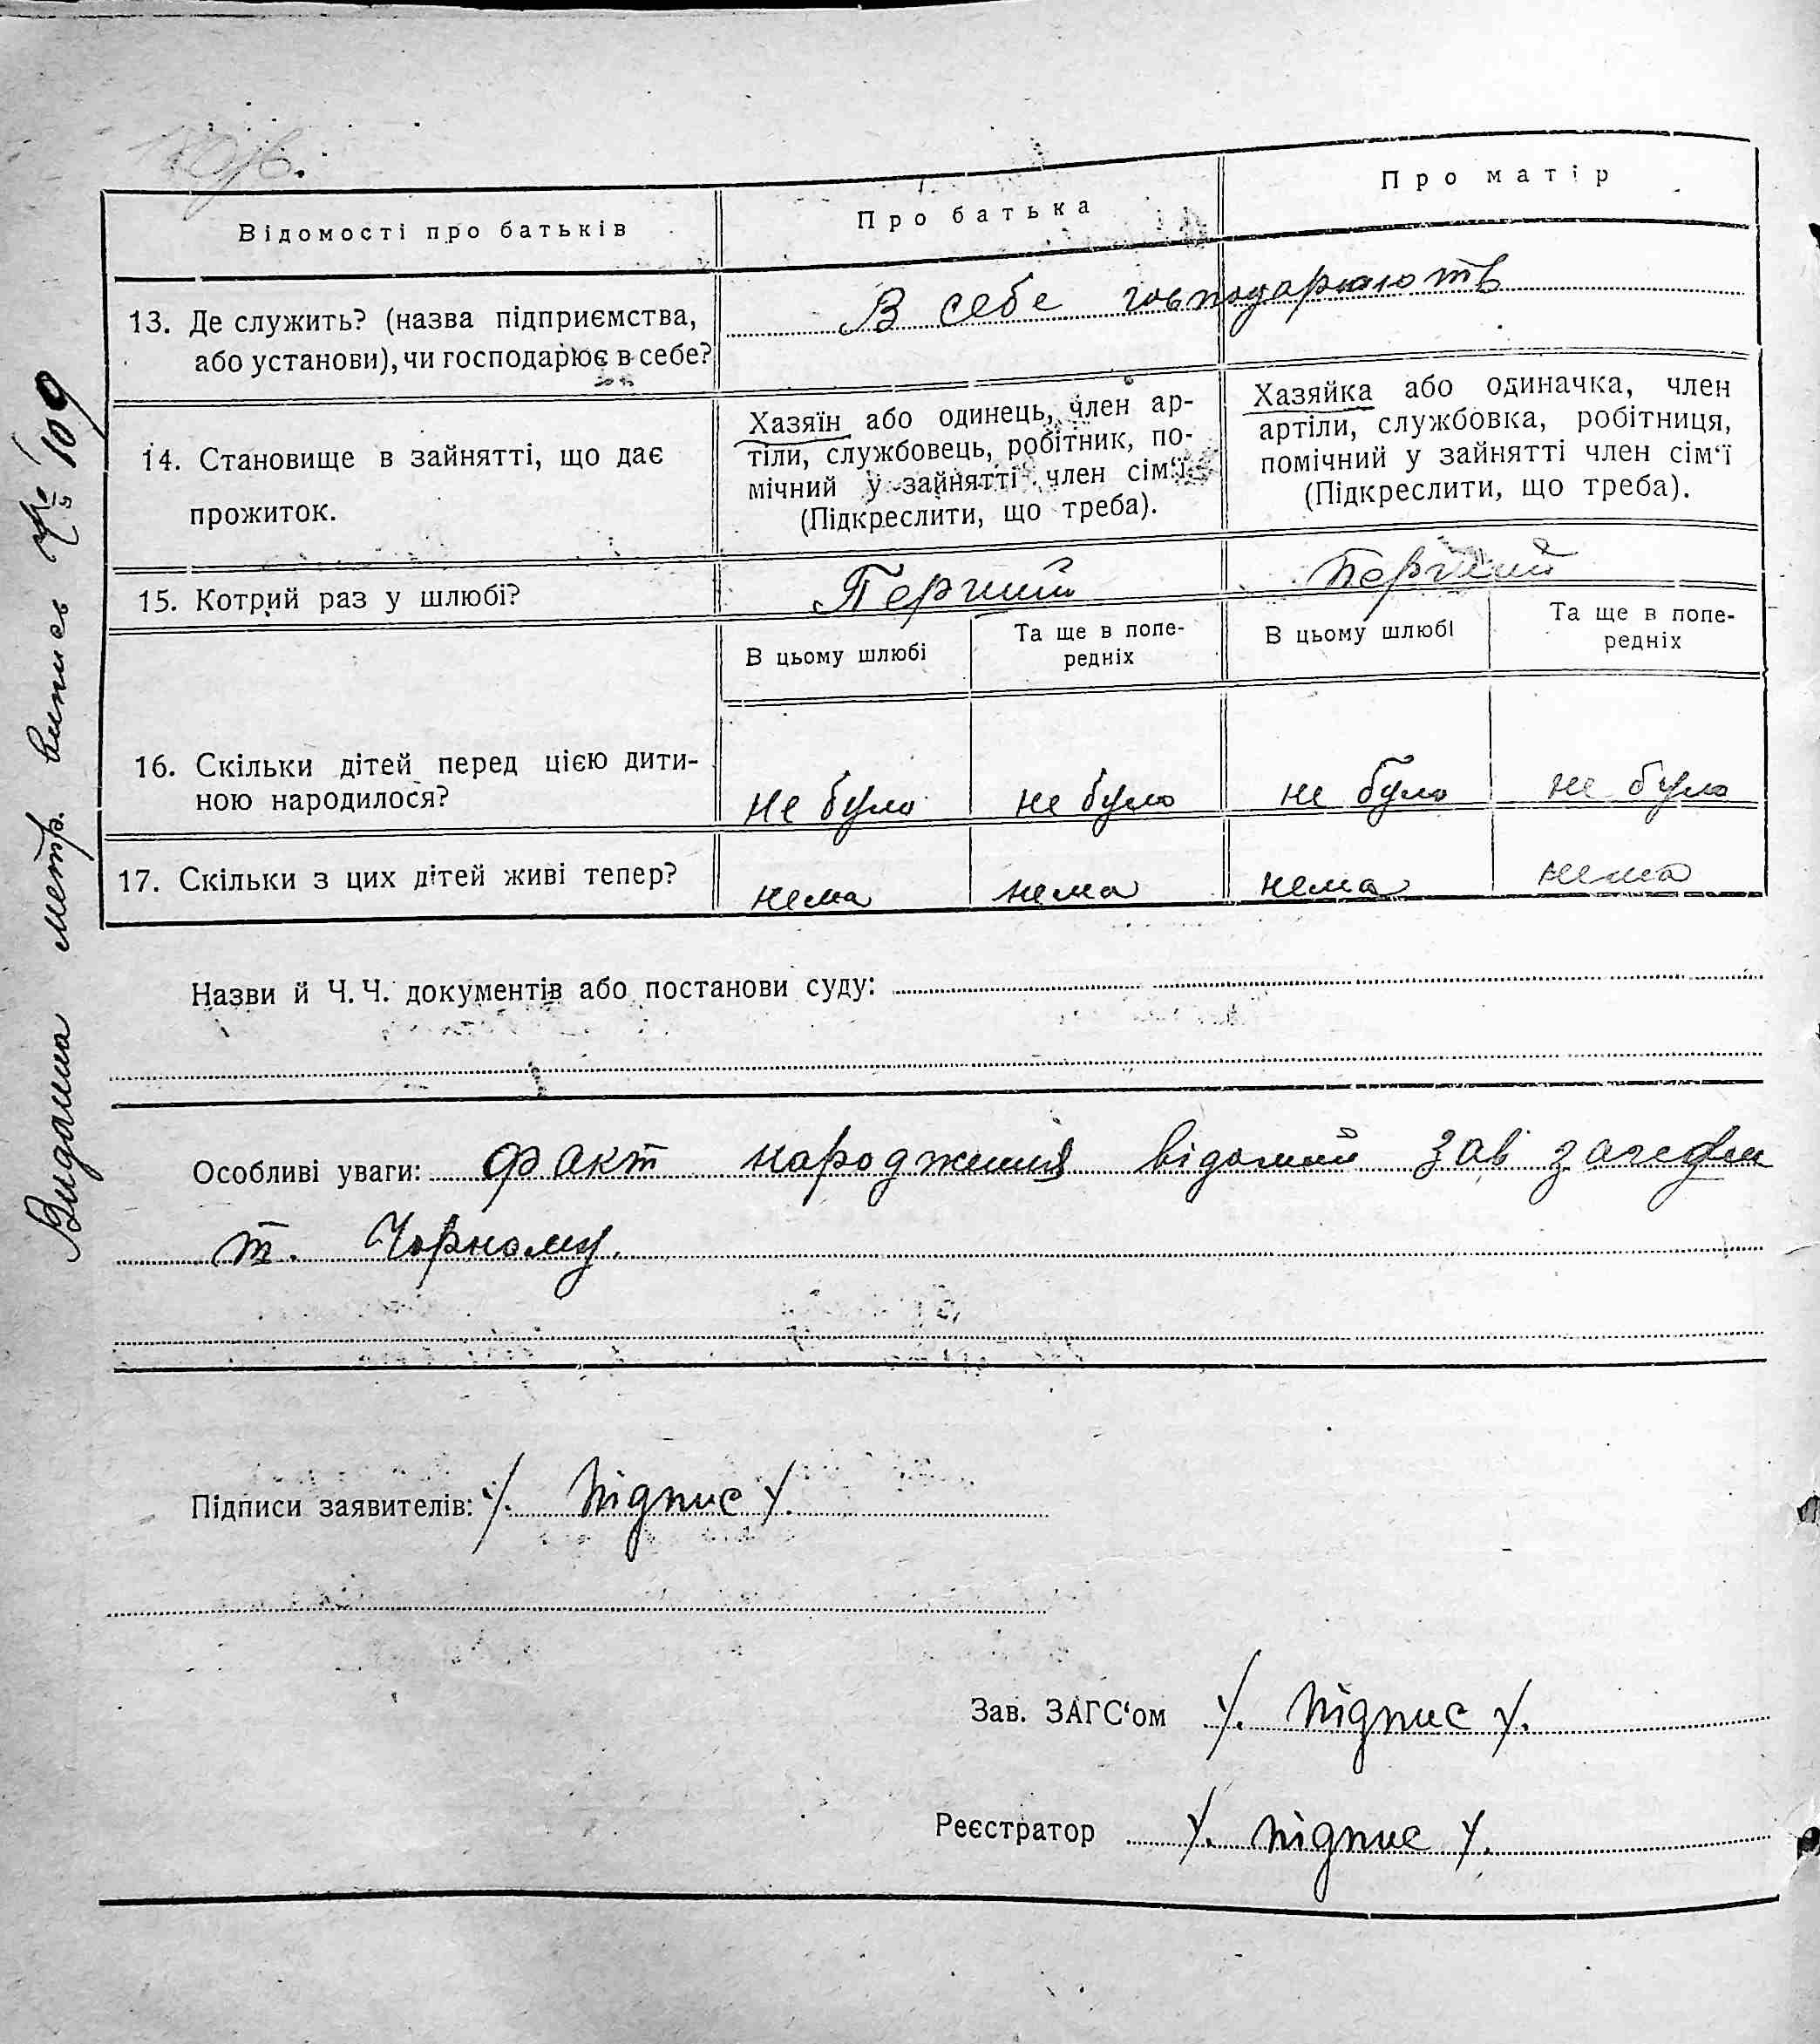 Відомості про батьків
Про батька
Про матір
13. Де служить? (назва підприємства,
або установи), чи господарює в себе?
В себе господарюють
14. Становище в зайнятті, що дає
прожиток.
Хазяїн або одинець, член ар-
тіли, службовець, робітник, по-
мічний у зайнятті член сім'ї.
(Підкреслити, що треба).
Хазяйка або одиначка, член
артіли, службовка, робітниця,
помічний у зайнятті член сім'ї
(Підкреслити, що треба).
15. Котрий раз у шлюбі?
Перший
Перший
В цьому шлюбі
Та ще в попе-
редніх
В цьому шлюбі
Та ще в попе-
редніх
16. Скільки дітей перед цією дити-
ною народилося?
не було
не було
не було
не було
17. Скільки з цих дітей живі тепер?
нема
нема
нема
нема
Назви й Ч. Ч. документів або постанови суду:
Особливі уваги: Факт народження відомий зав
т. Чорному.
Підписи заявителів: /. Підпис /.
Зав. ЗАГС'ом /. Підпис /.
Реєстратор /. Підпис /.
Видана метр. випись 109